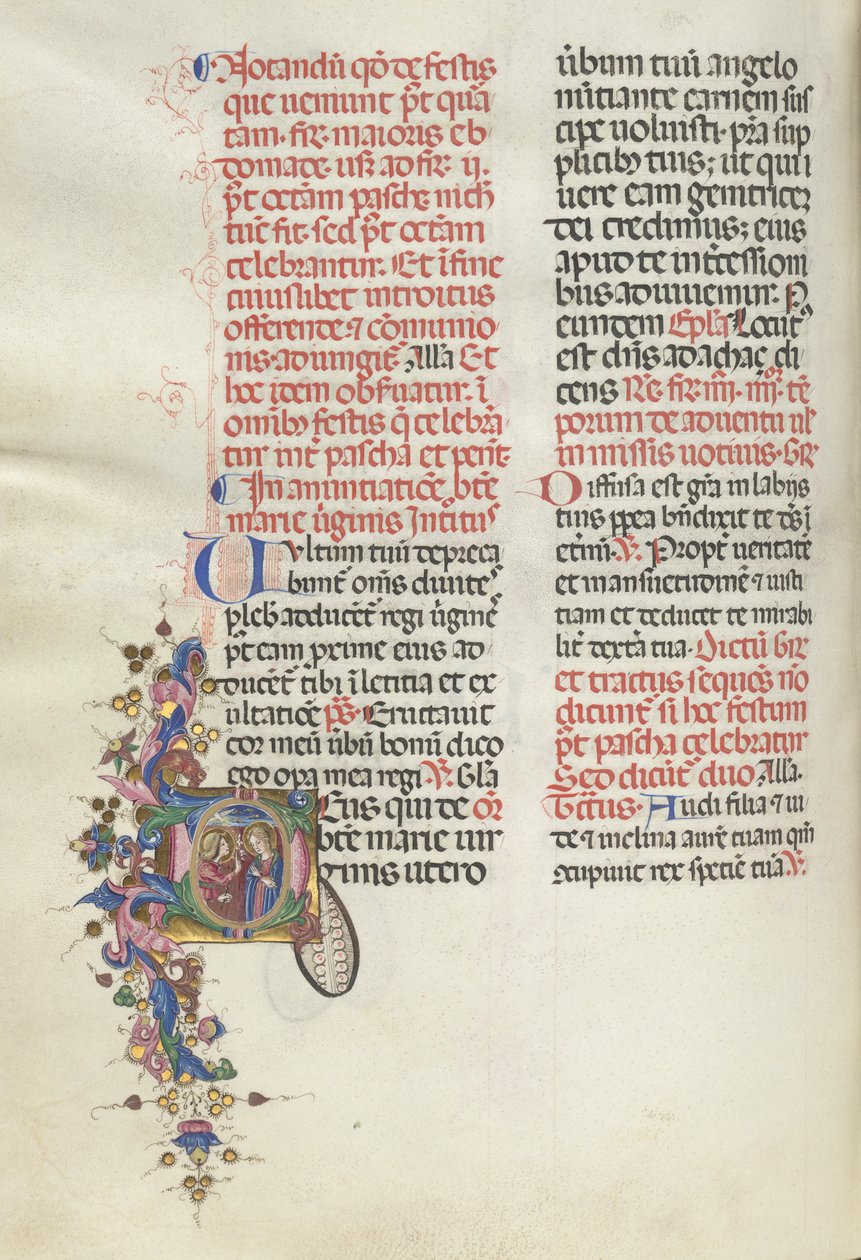 Notandū qđ de festis
que ueniunt p̄t qua
tam· fir̄· maioris eb
domade· usq̄ ad fir̄· ij·
p̄t octām pasche nich
tuē fit· sed p̄t octām
celebrantur· Et ī fine
cuiuslibet introitus
offerende ⁊ cōmunio
nis· adiungit̄ Alla Et
hoc idem obseruatur· ī
omīb; festis q̄ celebrā
tur int̄ pascha et pent̄
In anuntiatiōe btē
marie ūginis Introitus
Vultum tuū depreca
bunt̄ om̄s diuites
pleb̄ adducēt̄ regi ūginē
p̄t eam proxime eius ad
ducent̄ tibi ī letitia et ex
ultatiōe ps̄· Eructauit
cor meū ūbū bonū dico
ego opa mea regi V̄· Gla
Deus qui de or̄
btē marie uir
ginis utero
ūbum tuū angelo
nūtiante carnem sus
cipe uoluisti· pr̄a sup
plicib; tuis; ut qui
uere eam genitricez
dei credimus; eius
apud te int̄cessioni
bus adiuuemur· P
eundem Epl̄a Locut᾿
est dn̄s ad achaç di
cens Re· fir̄· iiij· iiijor· tē
porum de aduentu ul̄
in missis uotiuis· GR̄
Diffusa est gr̄a in labijs
tuis pp̄ea bn̄dixit te ds̄ ī
etnū· V̄· Propt̄ ueritatē
et mansuetudinē ⁊ iusti
tiam et deducet te mirabi
lit̄ dext̄a tua· Dictū gr̄
et tractus sequēs nō
dicunt̄ si hoc festum
p̄t pascha celebratur
Sed dicūt̄ duo Alla·
Tctus· Audi filia ⁊ ui
de ⁊ inclina aurē tuam qm̄
ɔcupiuit rex spetiē tuā V̄·